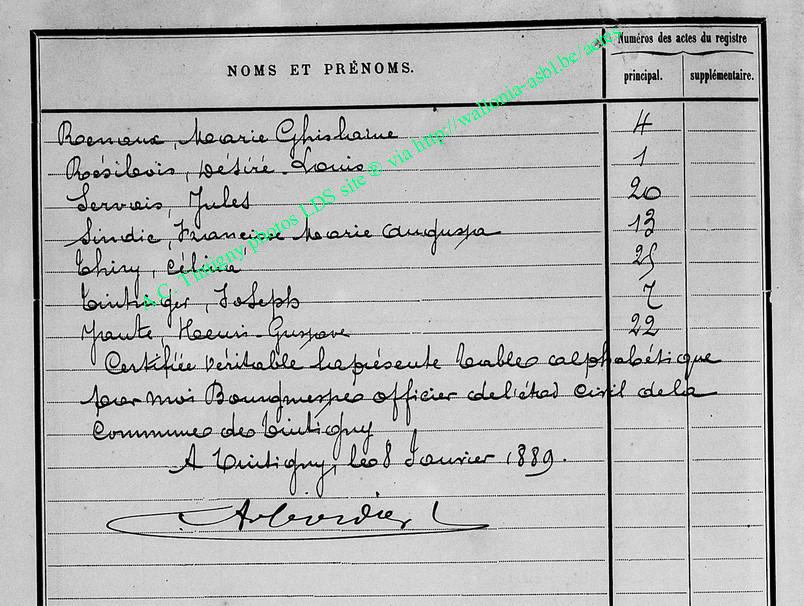 NOMS ET PRÉNOMS.
Numéros des actes du registre
principal. supplémentaire.
Remaux, Marie Ghislaine 4
Résibois, Désiré-Louis 1
Servais, Jules 20
Sindic, Francine Marie Augusta 13
Thiry, Célina 25
Tintinger, Joseph 7
Yante, Henri-Gustave 22
Certifiée véritable la présente table alphabétique
par moi Bourgmestre officier de l'état civil de la
Commune de Tintigny
A Tintigny, le 8 Janvier 1889.
A.C. Tintigny photos LDS site ® via http://wallonia-asbl.be/actes